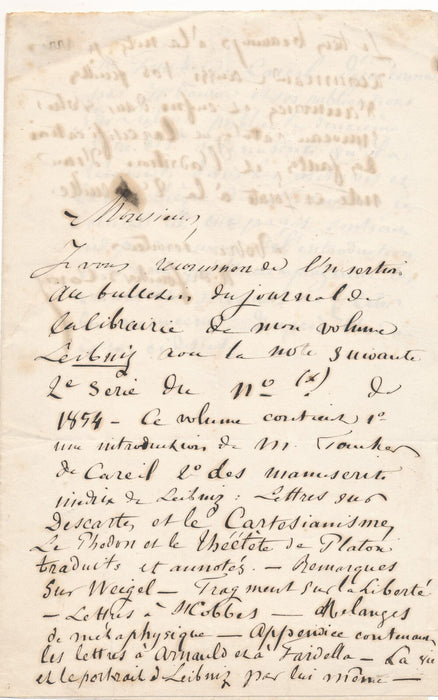 Monsieur,
Je vous recommande l'insertion
au bulletin du journal de
la librairie de mon volume
Leibniz sou la note suivante
2e Série du no (x) de
1854 — Ce volume contient 1o
une introduction de M. Foucher
de Careil 2o des manuscrits
inédits de Leibniz : Lettres sur
Descartes et le Cartésianisme,
Le Phédon et le Théétète de Platon
traduits et annotés. — Remarques
sur Weigel — Fragment sur la liberté
— Lettres à Hobbes — Mélanges
de métaphysique — Appendice contenant
les lettres à Arnauld et à Fardella — La vie
et le portrait de Leibniz par lui même —